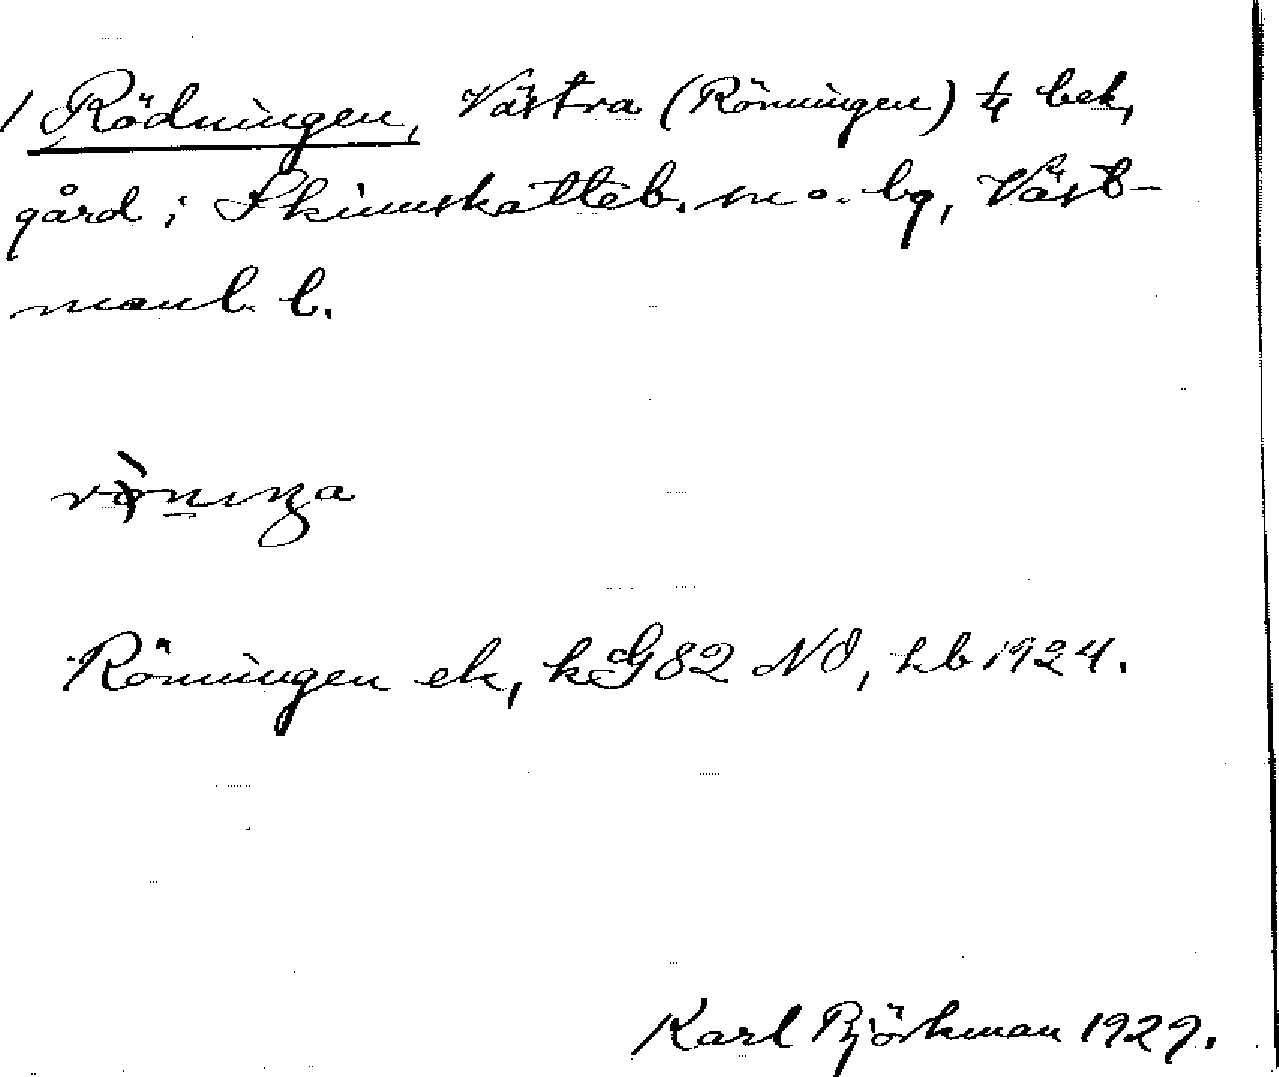 1 Rödningen, Västra (Rönningen) 1/4 bek,
gård i Skinnskatteb. sn o. bg, Väst-
manl. l.
Rönningen ek, kG 82 NO, hb 1924.
Karl Björkman 1929.